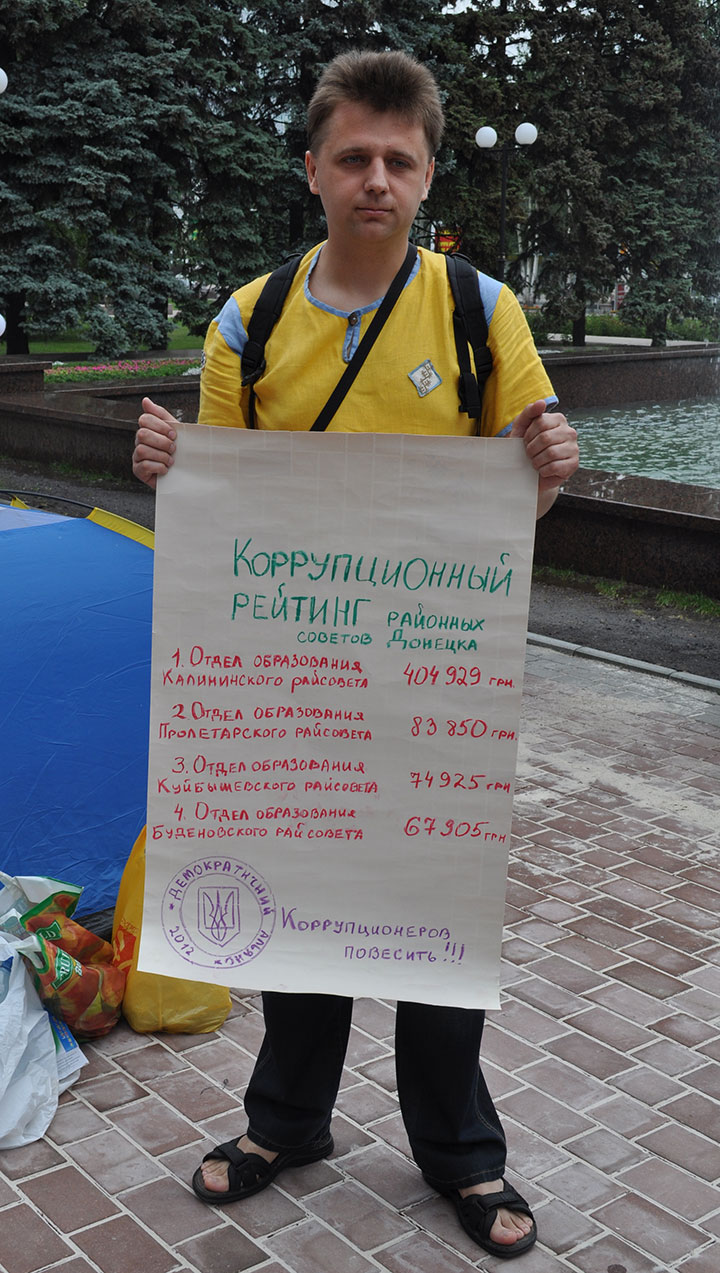 Коррупционный
рейтинг районных
советов Донецка
1. Отдел образования
Калининского райсовета 404 929 грн.
2 Отдел образования
Пролетарского райсовета 83 850 грн.
3. Отдел образования
Куйбышевского райсовета 74925 грн
4. Отдел образования
Буденовского райсовета 67905 грн
*Демократичний
альянс*
2012
Коррупционеров
повесить!!!